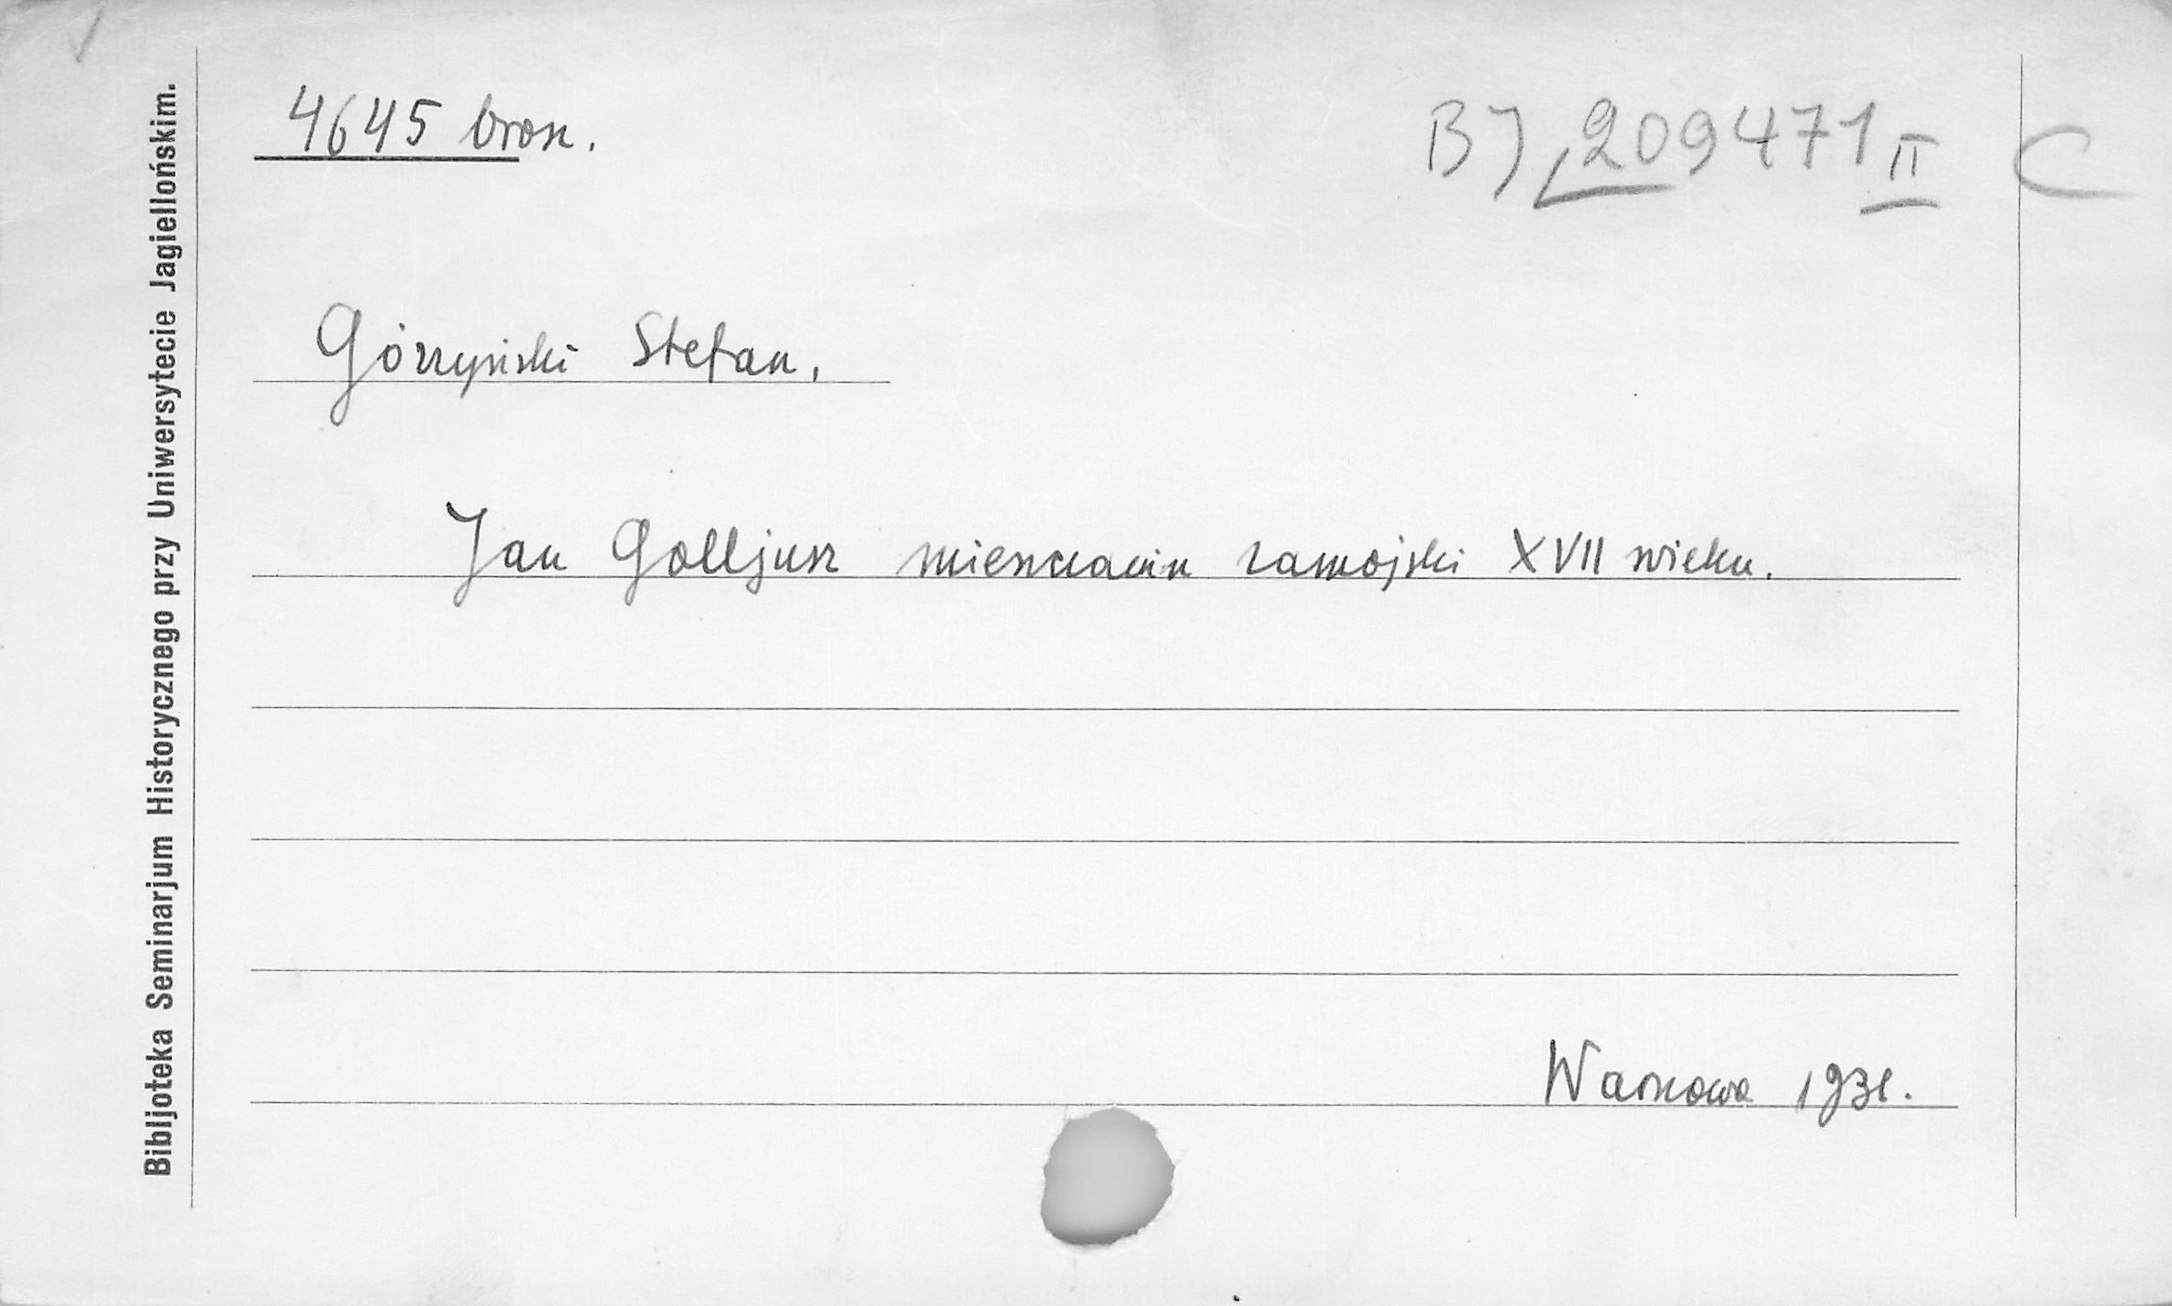 4645 brosz.
BJ 209471 II C
Górzyński Stefan.
Jan Golljusz mieszczanin zamojski XVII wieku.
Warszawa 1931.
Bibljoteka Seminarjum Historycznego przy Uniwersytecie Jagiellońskim.